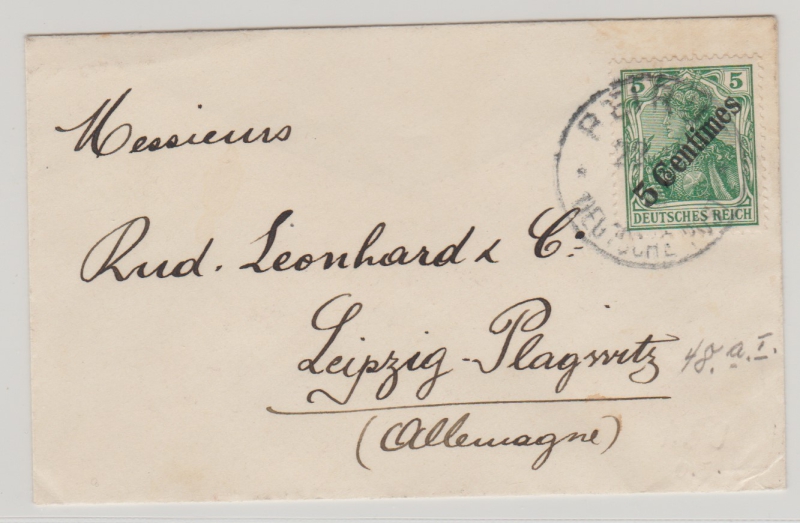 5 5
5 Centimes
DEUTSCHES REICH
DEUTSCHE
Messieurs
Rud. Leonhard & C:
Leipzig-Plagwitz
48. a. I.
(Allemagne)